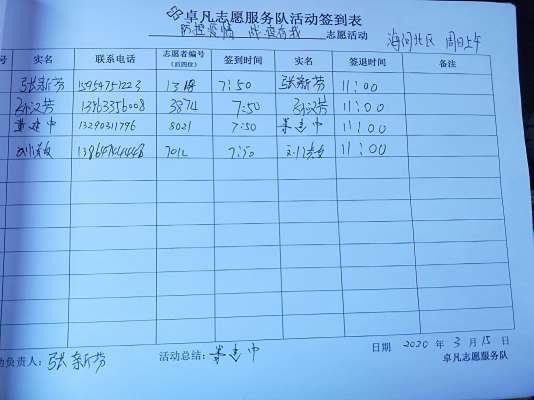 卓凡志愿服务队活动签到表
防控疫情 战疫有我 志愿活动 海河北区 周日上午
号 实名 联系电话 志愿者编号(后四位) 签到时间 实名 签退时间 备注
张新芳 15954751223 1318 7:50 张新芳 11:00
孙汉芳 13963356008 3874 7:50 孙汉芳 11:00
建中 13290311796 8021 7:50 建中 11:00
刘 7012 7:50 刘 11:00
动负责人: 张新芳 活动总结: 建中 日期 2020 年 3 月 15 日
卓凡志愿服务队